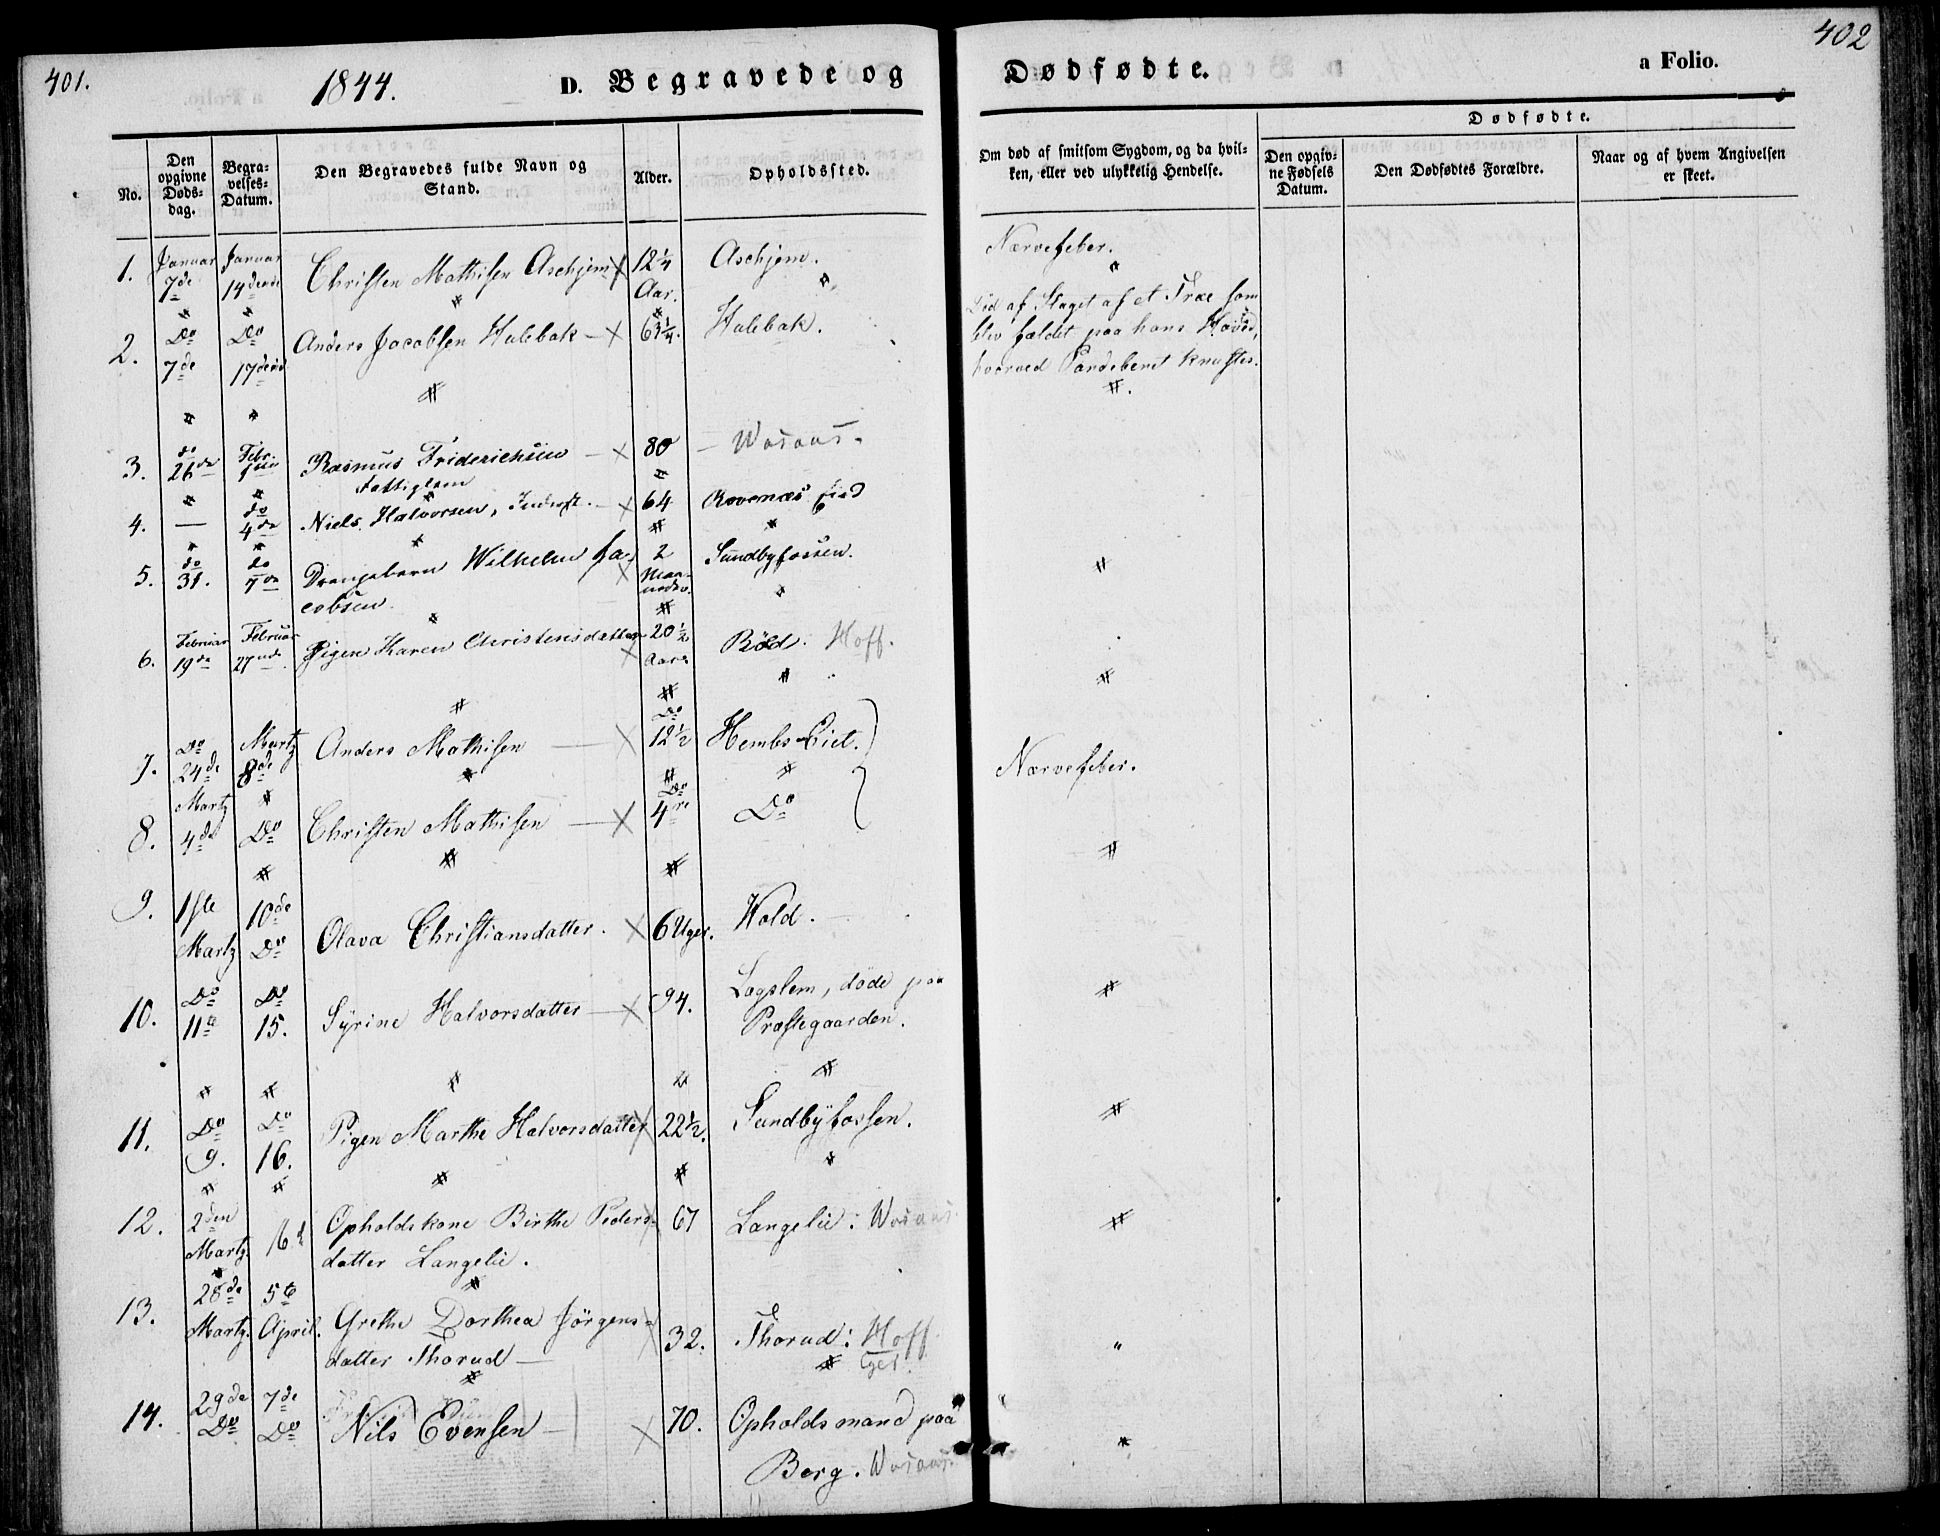 401.
1844.
D. Begravede og
Dødfødte.
a Folio.
402
No.
Den opgivne Døds-dag.
Begra-velses-Datum.
Den Begravedes fulde Navn og Stand.
Alder.
Opholdssted.
Om død af smitsom Sygdom, og da hvil-
ken, eller ved ulykkelig Hendelse.
Dødfødte.
Den opgiv-ne Fødsels Datum.
Den Dødfødtes Forældre.
Naar og af hvem Angivelsen er skeet.
1. Januar 7de Januar 14dende Christen Mathisen Aschjem 12¼ Aar. Aschjem. Nervefeber.
2. Do 7de Do 17dende Anders Jacobsen Hulebak 63¼. Hulebak.
Død af Slaget af et Træ som
blev fældet paa hans Hoved,
hvorved Pandebenet knustes.
3. do 26de Febr. Rasmus Friderichsen 80 Wasaas.
4. — do 4de Niels Halvorsen, 64 Ravenæs Eid
5. do 31. do Drengebarn Wilhelm Ja-
cobsen. 2 Maaneder. Sundbyfossen.
6. Februar 19de Februar 27nde Pigen Karen Christensdatter 20½ Aar Röd. Hoff.
7. Do 24de Martz 8de Anders Mathisen Do 12½ Hembs-Eiet. Nervefeber.
8. Martz 4de Do Christen Mathisen Do 4re Do
9. 1ste Martz 10de Do Olava Christiansdatter. 6 Uger. Wold.
10. Do 11te Do 15. Syrine Halvorsdatter 94. Lagslem, döde paa
Præstegaarden.
11. Do 9. Do 16. Pigen Marthe Halvorsdatter 22½. Sundbyfossen.
12. 2den Martz. 16d Opholdskone Birthe Peders-
datter Langelie. 67 Langelie: Wasaas
13. 28de Martz. 5te April. Grethe Dorthea Jörgens-
datter Thorud 32. Thorud: Hoff
14. 29de Do 7de Do Nils Evensen 70. Opholdsmand paa
Berg. Wasaas.